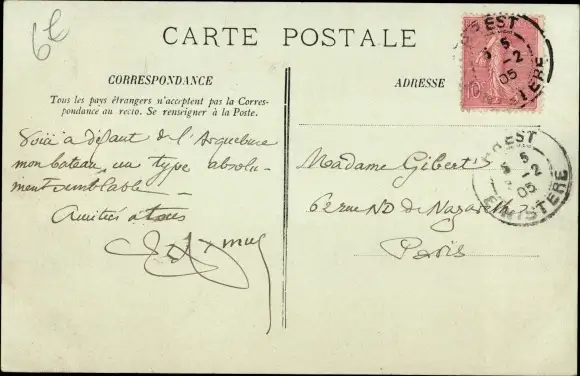 6f
CARTE POSTALE
CORRESPONDANCE
Tous les pays étrangers n'acceptent pas la Corres-
pondance au recto. Se renseigner à la Poste.
ADRESSE
BREST
5
5 -2
05
FINISTERE
10
Voici à défaut de l'Arquebuse
mon bateau, un type absolu-
ment semblable
Amitiés à tous
Madame Gibert
62 rue ND de Nazareth
Paris
BREST
5
5 -2
05
FINISTERE